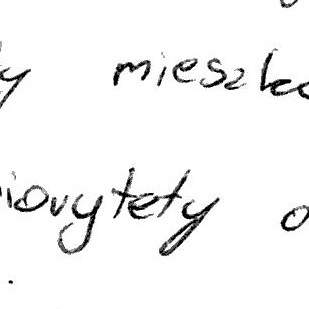 y mieszka
iorytety o
.